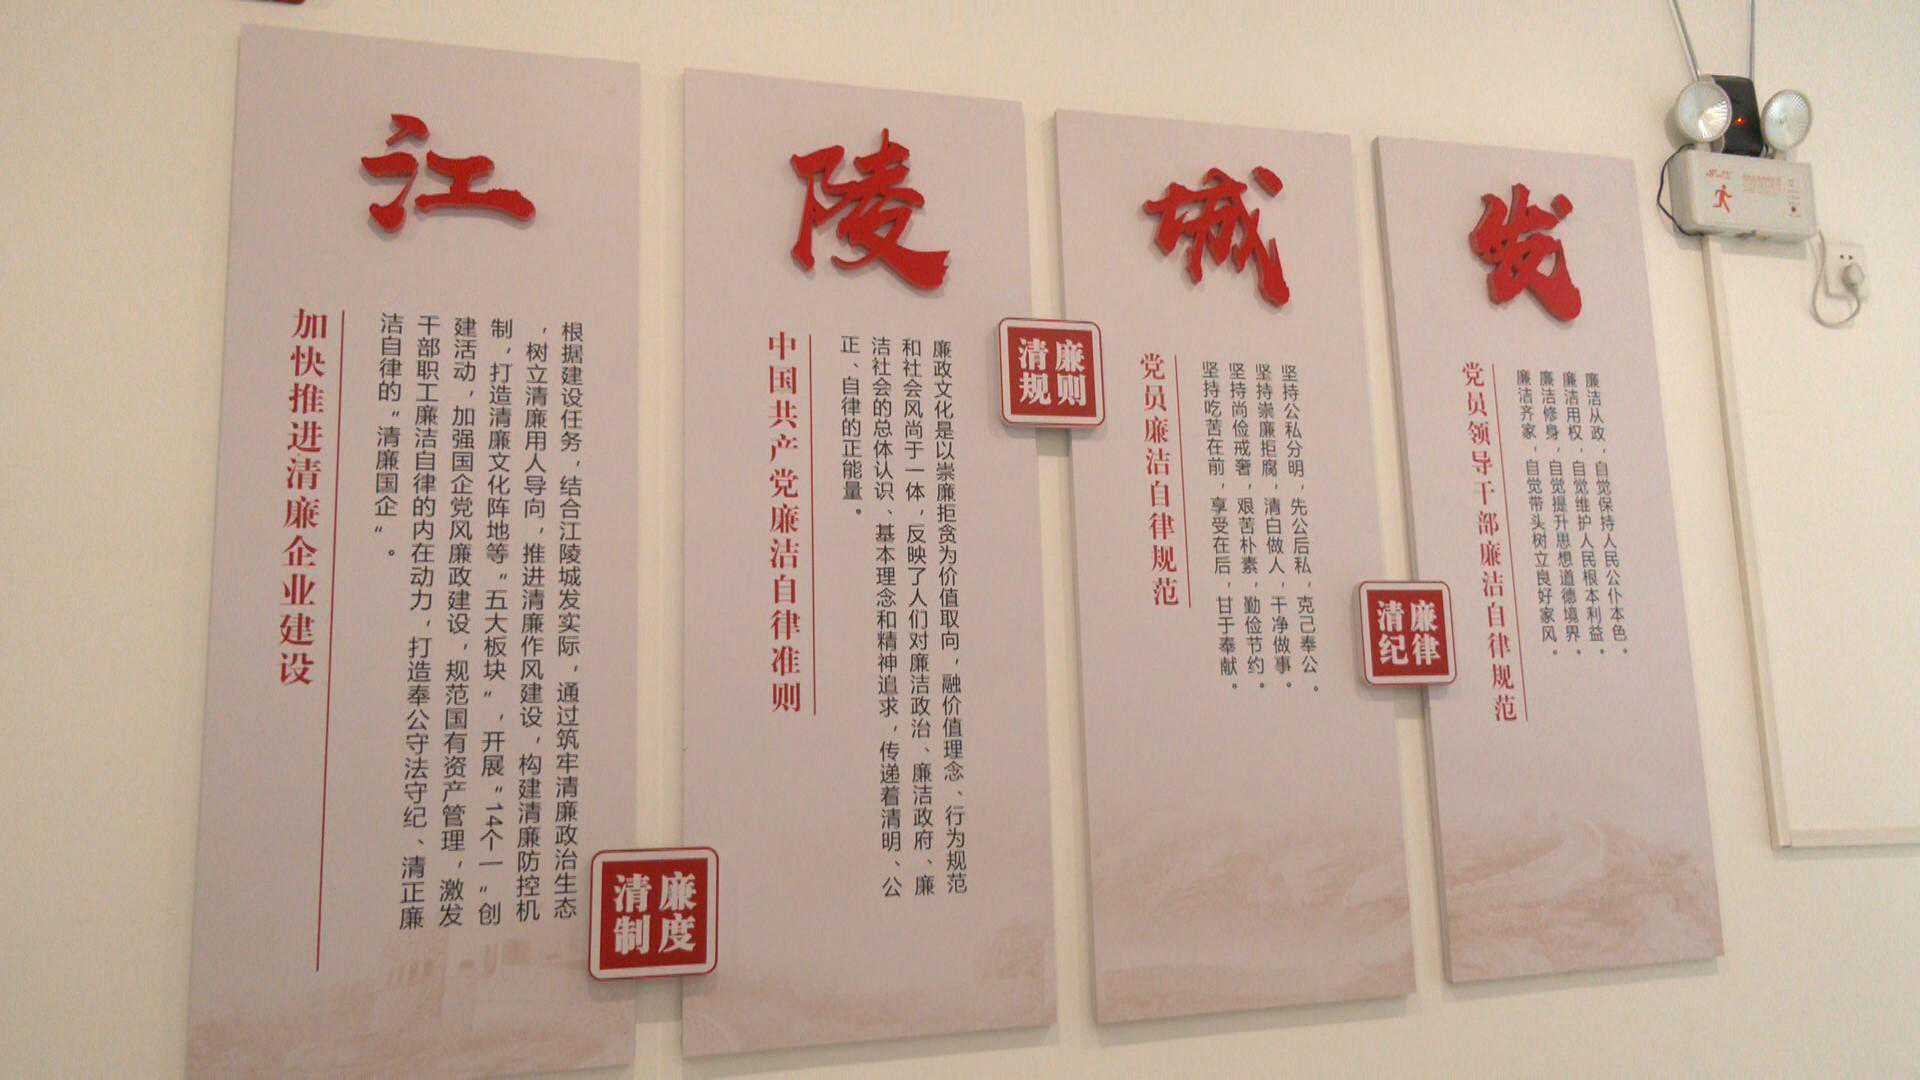 江
加快推进清廉企业建设
根据建设任务，结合江陵城发实际，通过筑牢清廉政治生态
，树立清廉用人导向，推进清廉作风建设，构建清廉防控机
制，打造清廉文化阵地等“五大板块”，开展“14个一”创
建活动，加强国企党风廉政建设，规范国有资产管理，激发
干部职工廉洁自律的内在动力，打造奉公守法守纪、清正廉
洁自律的“清廉国企”。
清廉
制度
陵
中国共产党廉洁自律准则
廉政文化是以崇廉拒贪为价值取向，融价值理念、行为规范
和社会风尚于一体，反映了人们对廉洁政治、廉洁政府、廉
洁社会的总体认识、基本理念和精神追求，传递着清明、公
正、自律的正能量。
清廉
规则
城
党员廉洁自律规范
坚持公私分明，先公后私，克己奉公。
坚持崇廉拒腐，清白做人，干净做事。
坚持尚俭戒奢，艰苦朴素，勤俭节约。
坚持吃苦在前，享受在后，甘于奉献。
清廉
纪律
发
党员领导干部廉洁自律规范
廉洁从政，自觉保持人民公仆本色。
廉洁用权，自觉维护人民根本利益。
廉洁修身，自觉提升思想道德境界。
廉洁齐家，自觉带头树立良好家风。